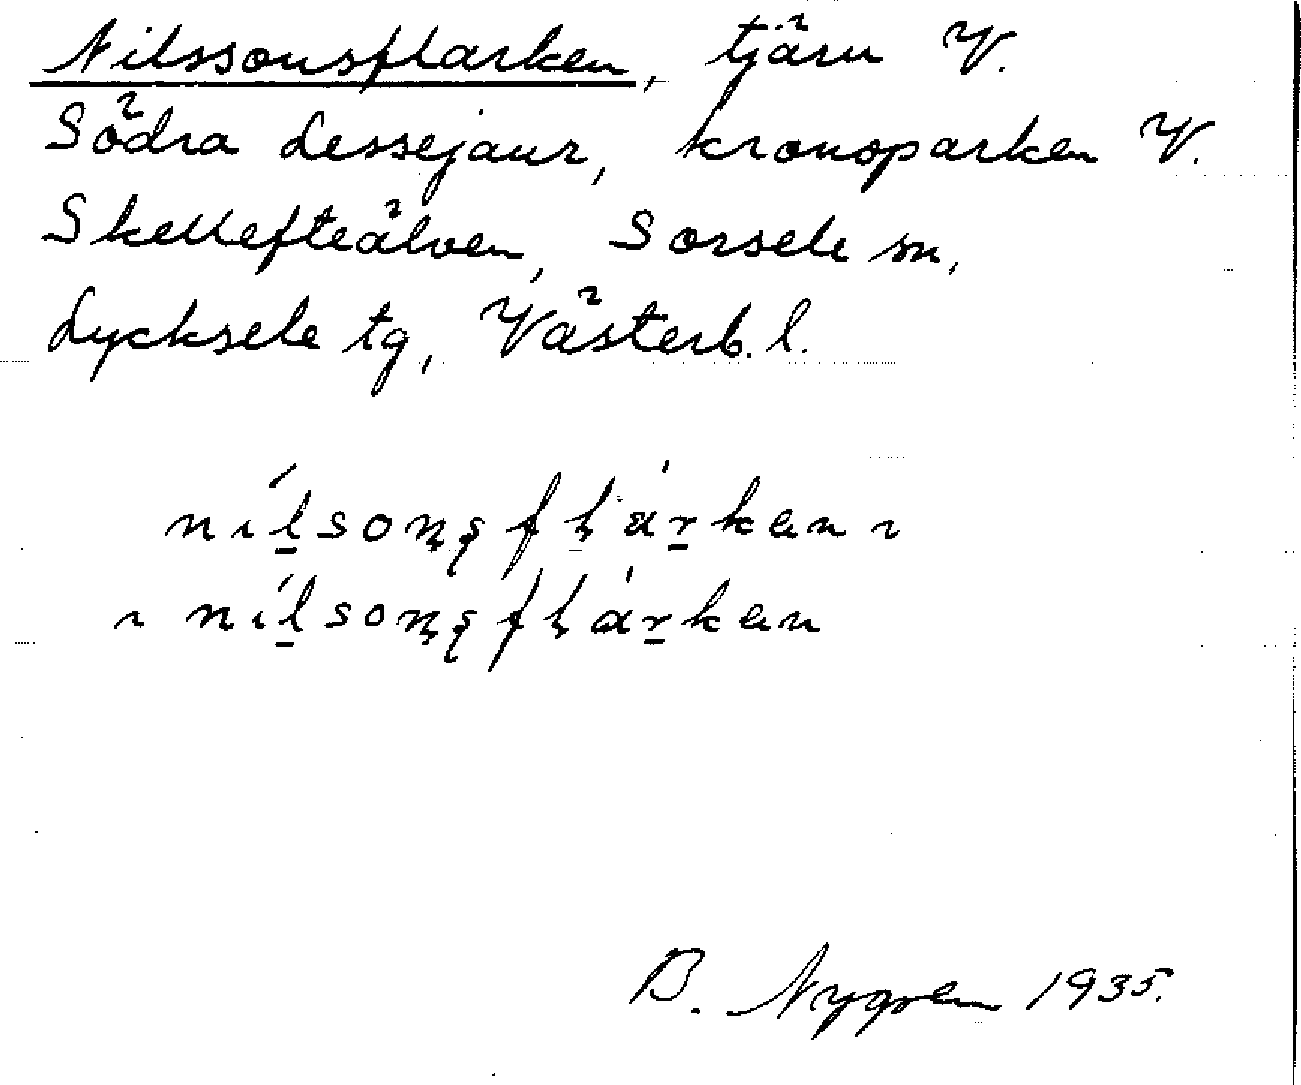 Nilssonsflarken, tjärn V.
Södra Lessejaur, kronoparken V.
Skellefteälven, Sorsele sn,
Lycksele tg, Västerb. l.
nílsonsflárkenı
ı nílsonsflárken
B. Nygren 1935.